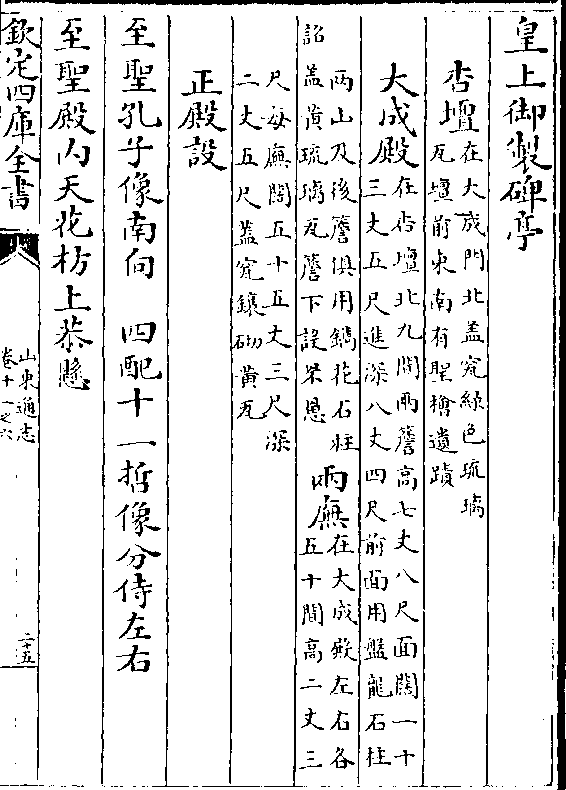 皇上御製碑亭
杏壇
在大成門北蓋窊綠色琉璃
瓦壇前東南有聖檜遺蹟
大成殿
在杏壇北九間兩簷高七丈八尺面闊一十
三丈五尺進深八丈四尺前面用盤龍石柱
兩山及後簷俱用鐫花石柱
詔蓋黃琉璃瓦簷下設罘罳
兩廡
在大成殿左右各
五十間高二丈三
尺每廡闊五十五丈三尺深
二丈五尺蓋窊鑲砌黃瓦
正殿設
至聖孔子像南向　四配十一哲像分侍左右
至聖殿内天花枋上恭懸
欽定四庫全書
山東通志
卷十一之六
二十五